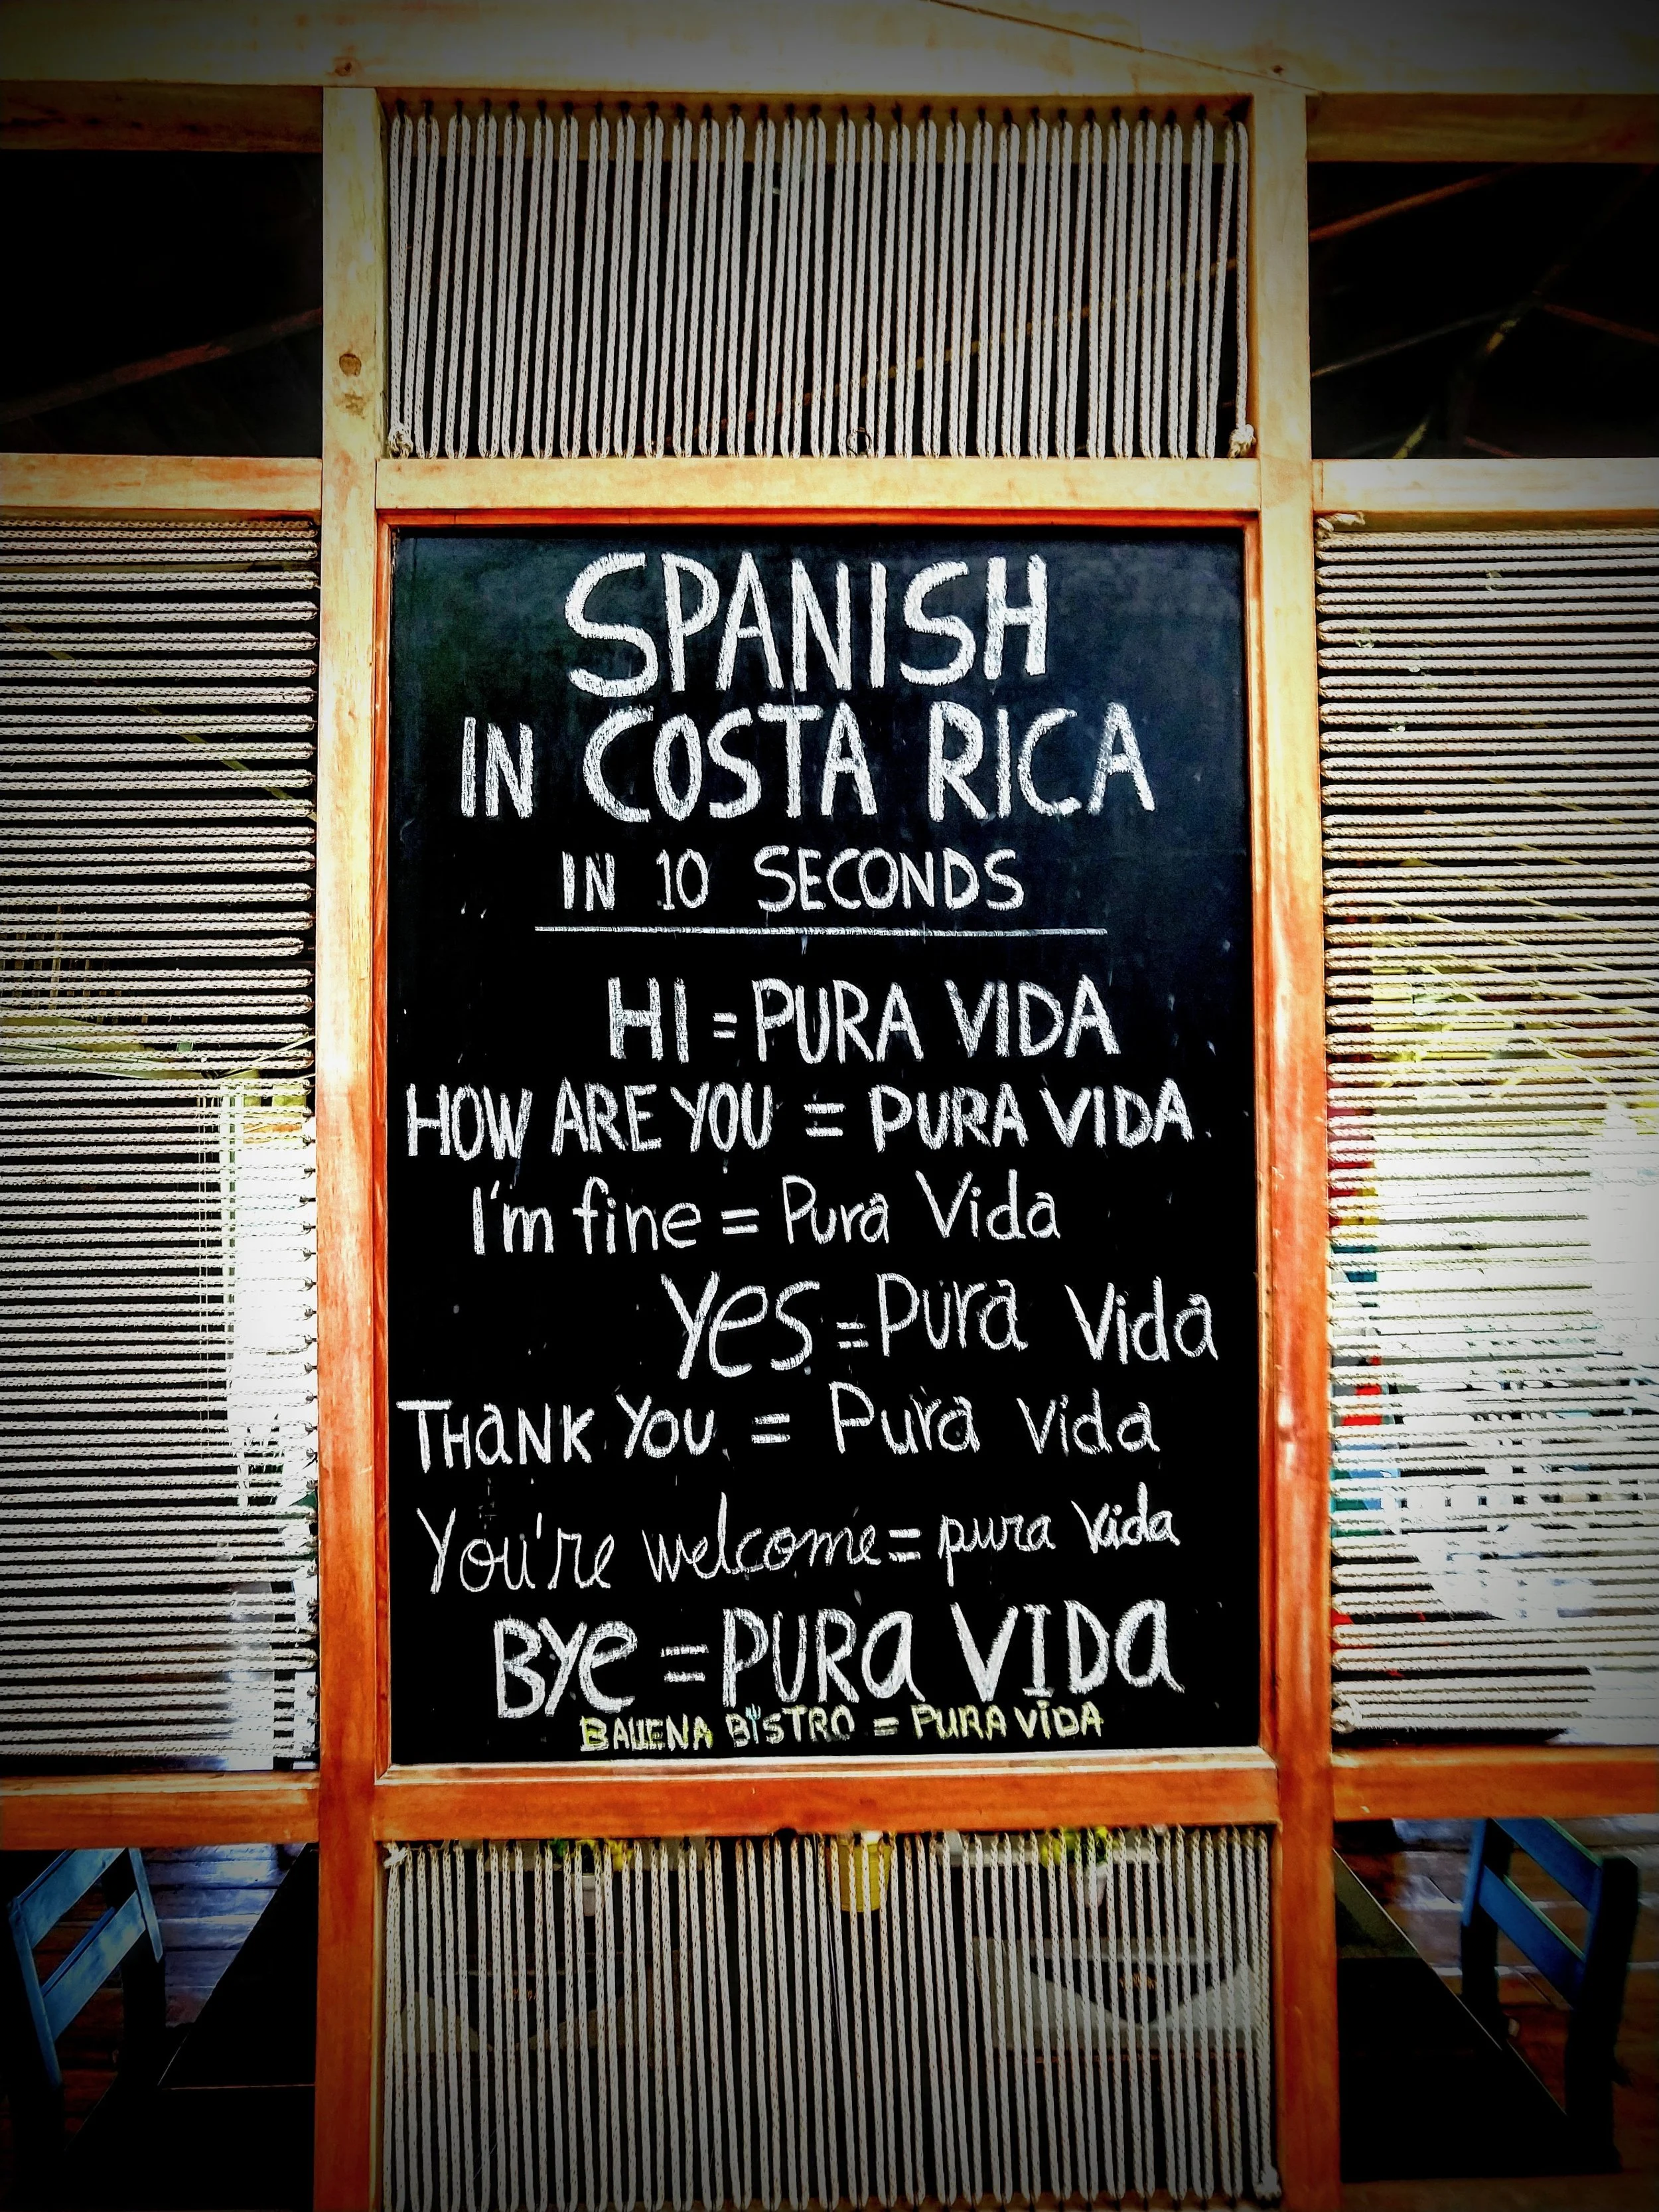 SPANISH
IN COSTA RICA
IN 10 SECONDS
HI = PURA VIDA
HOW ARE YOU = PURA VIDA
I'm fine = Pura Vida
Yes = Pura Vida
THaNK YOU = Pura Vida
You're welcome = pura vida
BYe = PURa VIDa
BALLENA BiSTRO = PURA ViDA